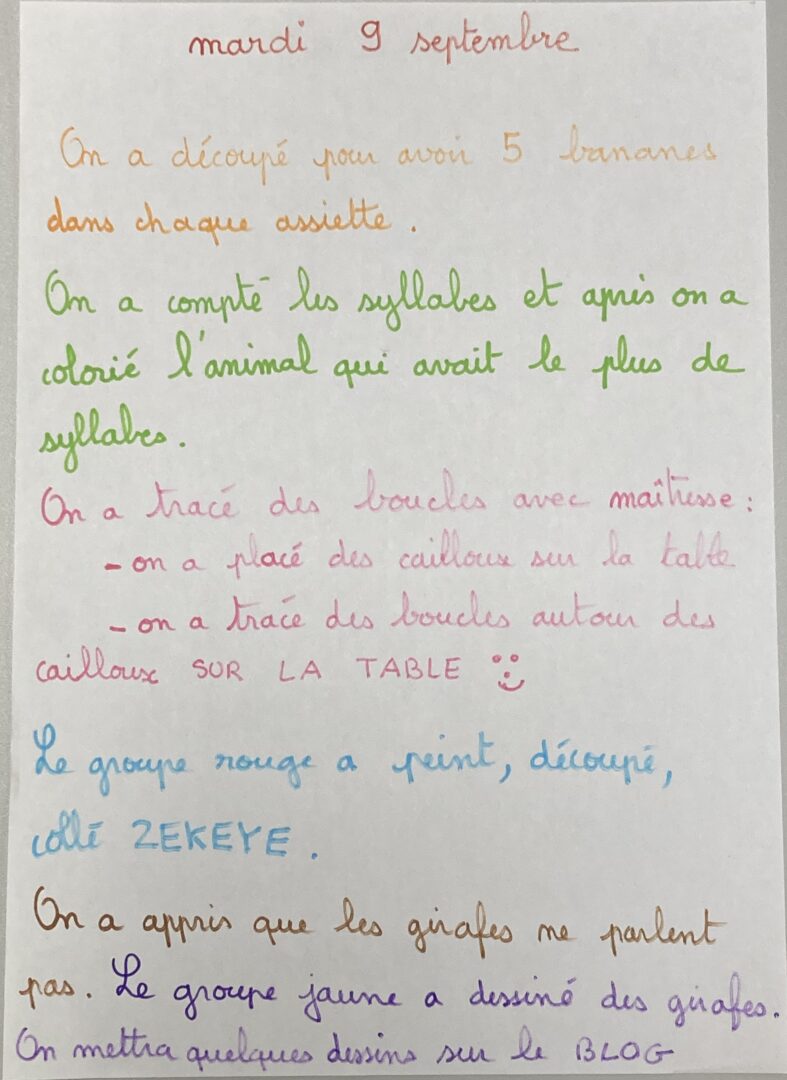 mardi 9 septembre
On a découpé pour avoir 5 bananes
dans chaque assiette.
On a compté les syllabes et après on a
colorié l'animal qui avait le plus de
syllabes.
On a tracé des boucles avec maîtresse :
- on a placé des cailloux sur la table
- on a tracé des boucles autour des
cailloux SUR LA TABLE
Le groupe rouge a peint, découpé,
collé ZEKEYE.
On a appris que les girafes ne parlent
pas. Le groupe jaune a dessiné des girafes.
On mettra quelques dessins sur le BLOG